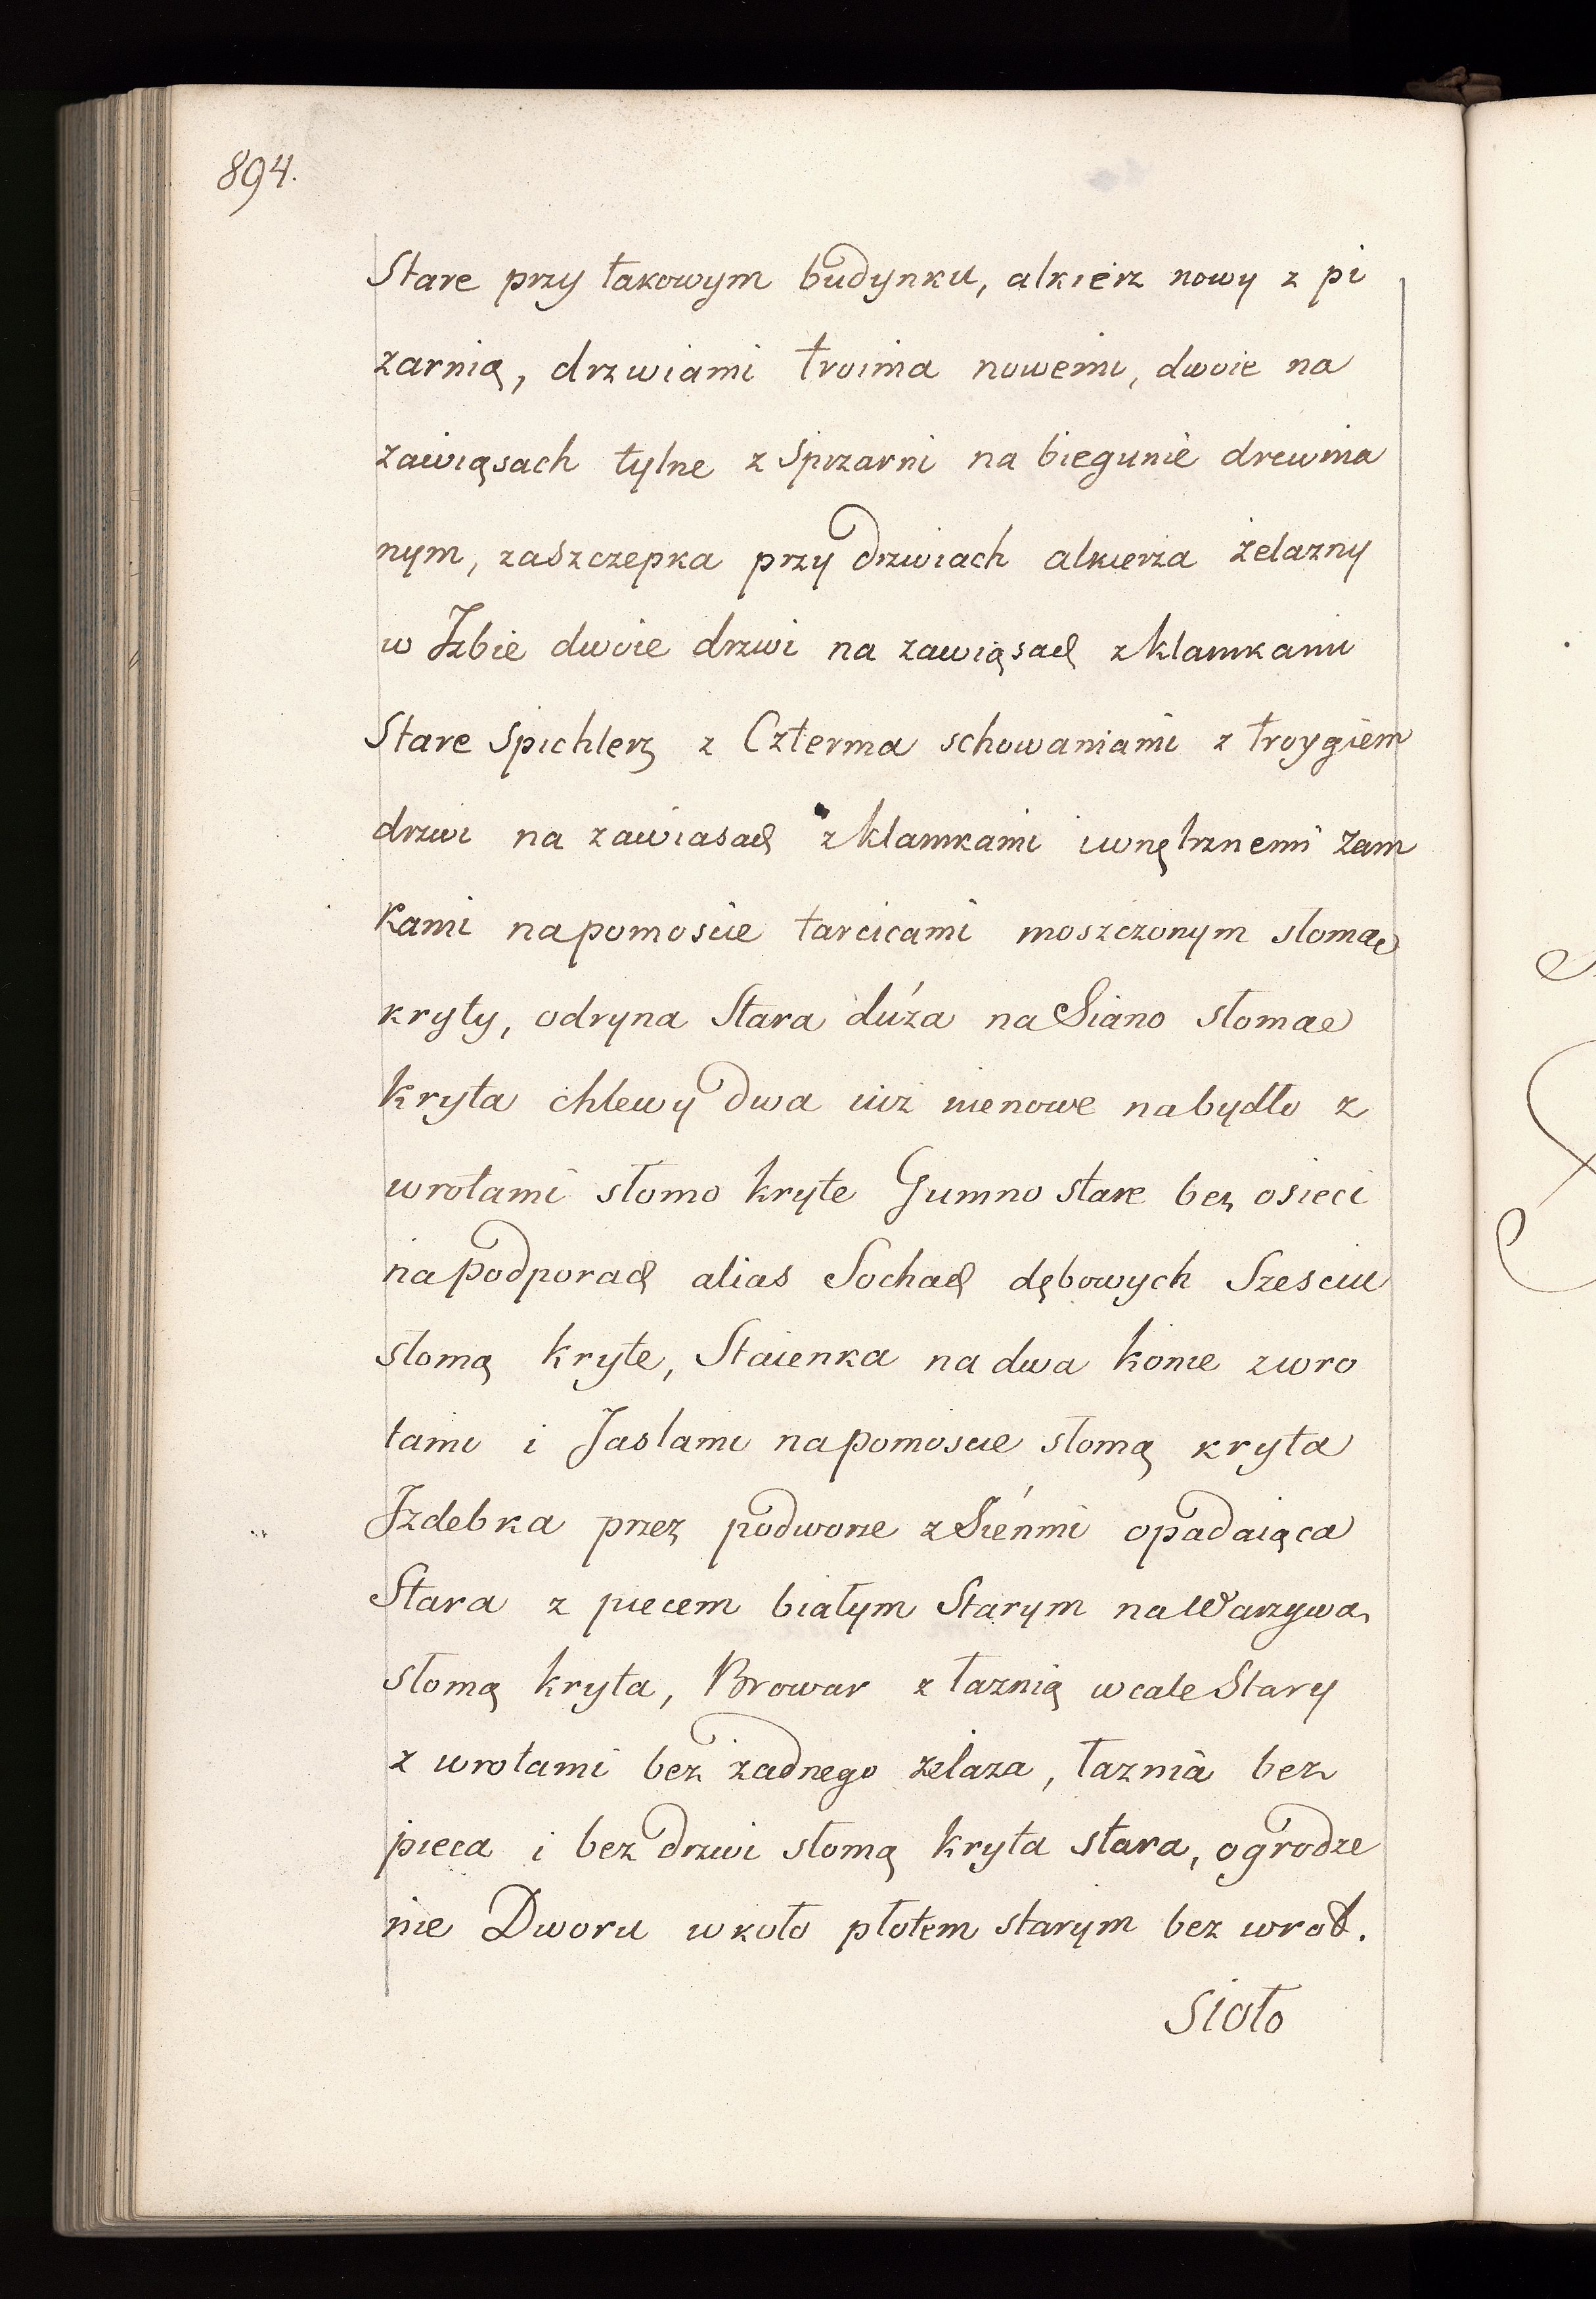 894.
Stare przy takowym budynku, alkierz nowy z pi
zarnią, drzwiami troima nowemi, dwoie na
zawiąsach tylne z Spizarni na biegunie drewnia
nym, zaszczepka przy drzwiach alkierza żelazny
w Izbie dwoie drzwi na zawiąsach z klamkami
Stare Spichlerz z Czterma schowaniami z troygiem
drzwi na zawiasach z klamkami iwnętrznemi zam
kami na pomoscie tarcicami moszczonym słomae
kryty, odryna Stara duża na Siano słomae
kryta chlewy dwa iuż nienowe na bydło z
wrotami słomo kryte Gumno stare bez osieci
na podporach alias Sochach dębowych Szesciu
słomą kryte, Staienka na dwa konie z wro
tami i Jasłami na pomoscie słomą kryta
Izdebka przez podworze z Sieńmi opadaiąca
Stara z piecem białym Starym na Warzywa
słomą kryta, Browar z łaznią wcale Stary
z wrotami bez żadnego żelaza, łaznia bez
pieca i bez drzwi słomą kryta stara, ogrodze
nie Dworu wkoło płotem starym bez wrot.
Sioło